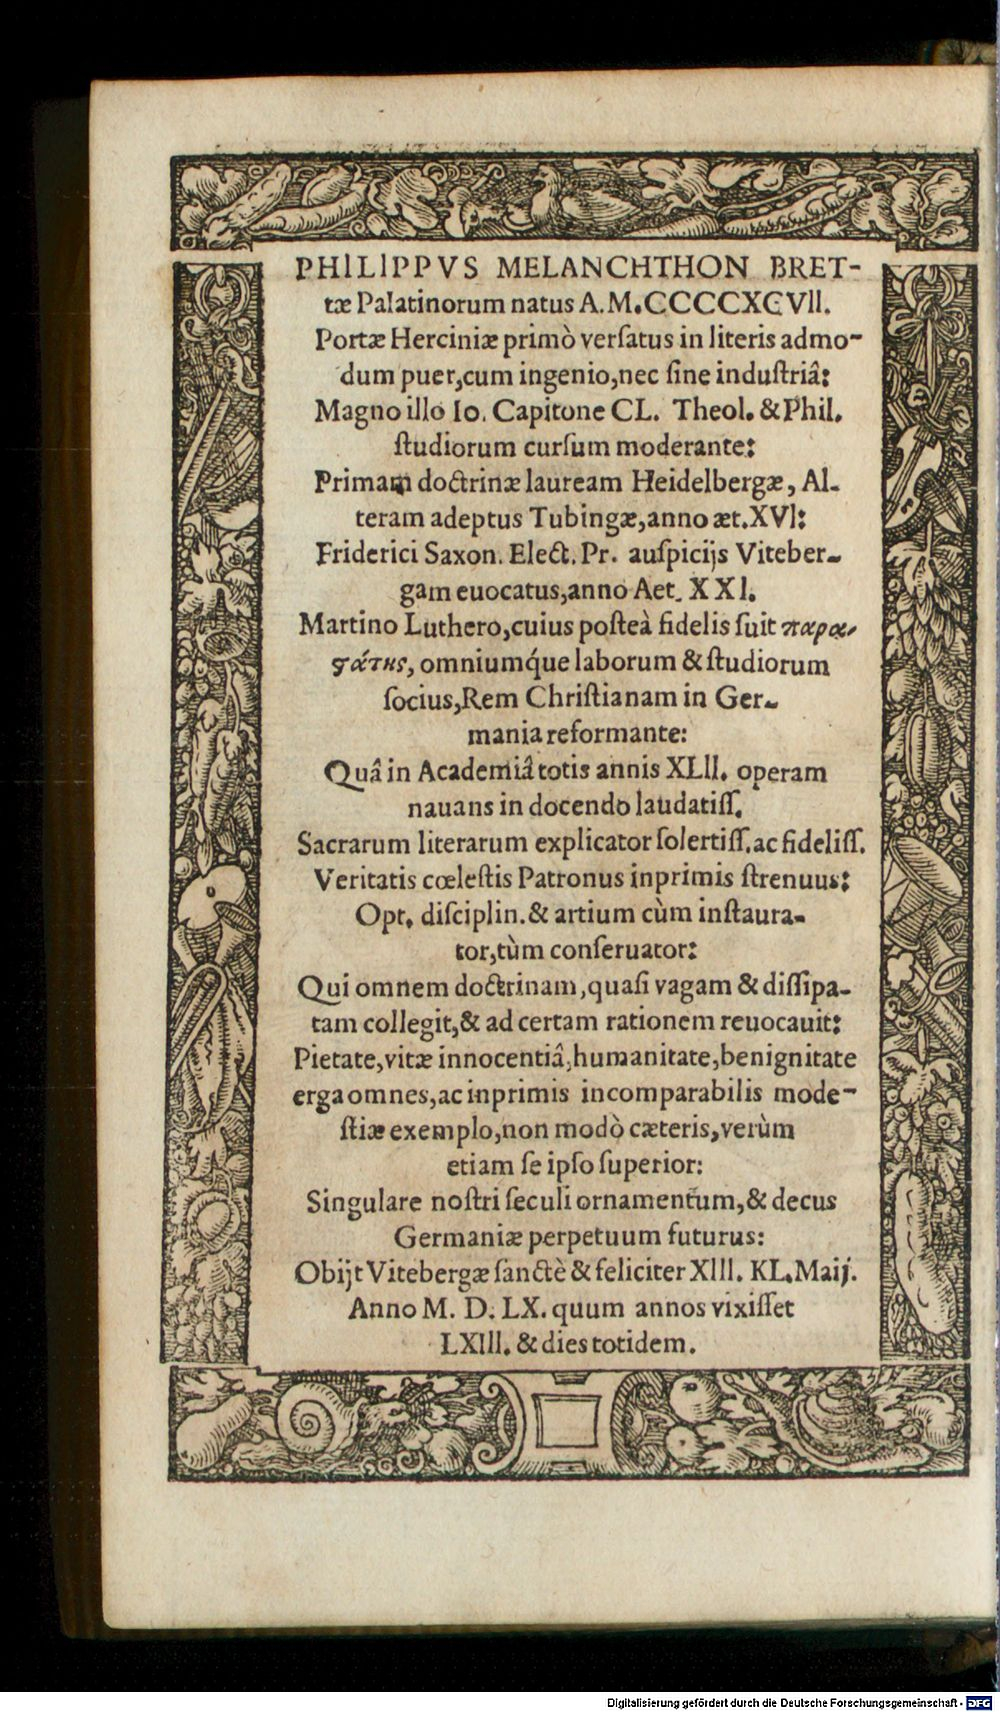 PHILIPPVS MELANCHTHON BRET-
tæ Palatinorum natus A. M. CCCCXCVII.
Portæ Herciniæ primò verſatus in literis admo-
dum puer, cum ingenio, nec ſine induſtriâ:
Magno illo Io. Capitone CL. Theol. & Phil.
ſtudiorum curſum moderante:
Primam doctrinæ lauream Heidelbergæ, Al-
teram adeptus Tubingæ, anno æt. XVI:
Friderici Saxon. Elect. Pr. auſpicijs Viteber-
gam euocatus, anno Aet. XXI.
Martino Luthero, cuius poſteà fidelis fuit παρα-
ϛάτης, omniumq́ue laborum & ſtudiorum
ſocius, Rem Chriſtianam in Ger-
mania reformante:
Quâ in Academiâ totis annis XLII. operam
nauans in docendo laudatiſſ.
Sacrarum literarum explicator ſolertiſſ. ac fideliſſ.
Veritatis cœleſtis Patronus inprimis ſtrenuus:
Opt. diſciplin. & artium cùm inſtaura-
tor, tùm conſeruator:
Qui omnem doctrinam, quaſi vagam & diſſipa-
tam collegit, & ad certam rationem reuocauit:
Pietate, vitæ innocentiâ, humanitate, benignitate
erga omnes, ac inprimis incomparabilis mode-
ſtiæ exemplo, non modò cæteris, verùm
etiam ſe ipſo ſuperior:
Singulare noſtri ſeculi ornamentum, & decus
Germaniæ perpetuum futurus:
Obijt Vitebergæ ſanctè & feliciter XIII. KL. Maij.
Anno M. D. LX. quum annos vixiſſet
LXIII. & dies totidem.
Digitalisierung gefördert durch die Deutsche Forschungsgemeinschaft - DFG